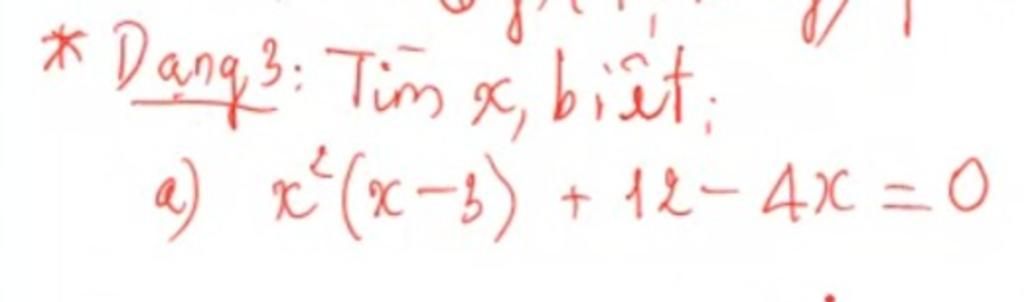 * Dạng 3: Tìm x, biết:
a) x²(x-3) + 12 - 4x = 0